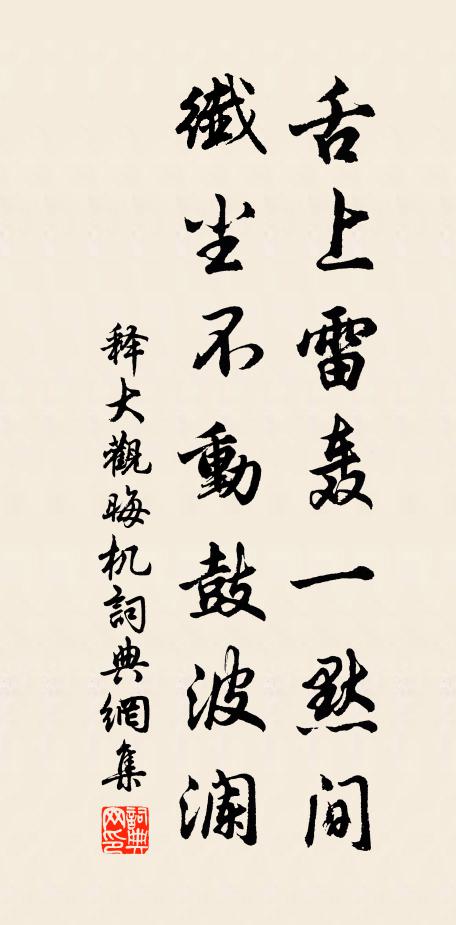 舌上雷轰一默间
纎尘不動鼓波澜
释大觀晦机詞典網集
詞典网印